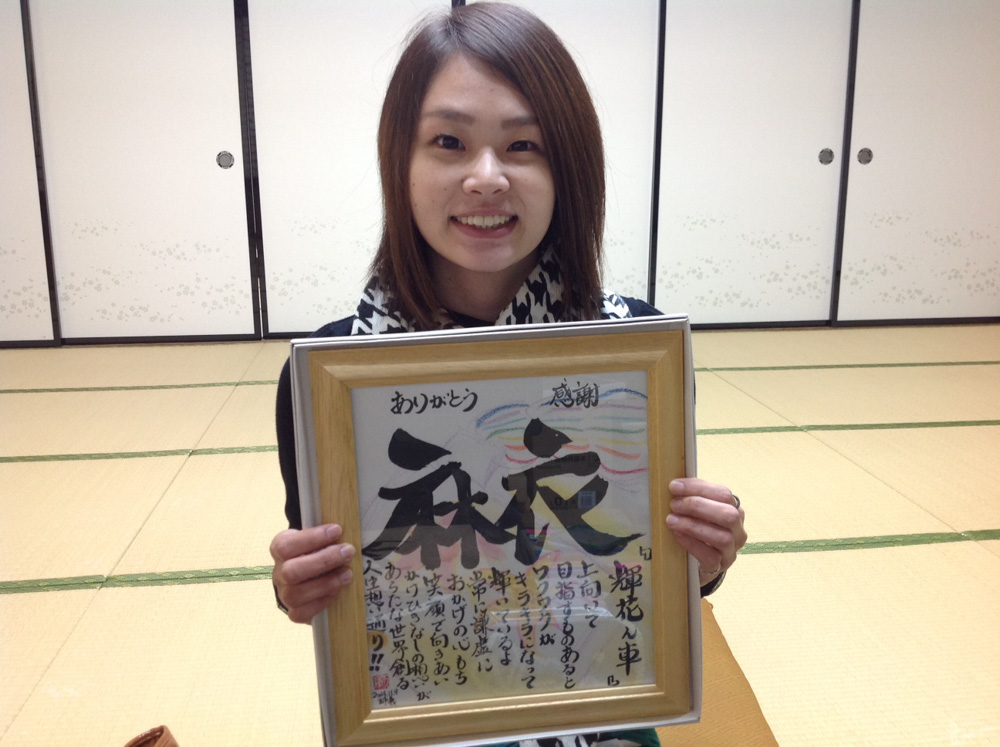 ありがとう
感謝
麻衣
『輝花ん車』
上向いて
目指すものあると
ワクワクが
キラキラになって
輝いているよ
常に謙虚に
おかげの心もち
笑顔で向きあい
かけひきなしの想いが
あらたな世界創る
人生想い通り!!